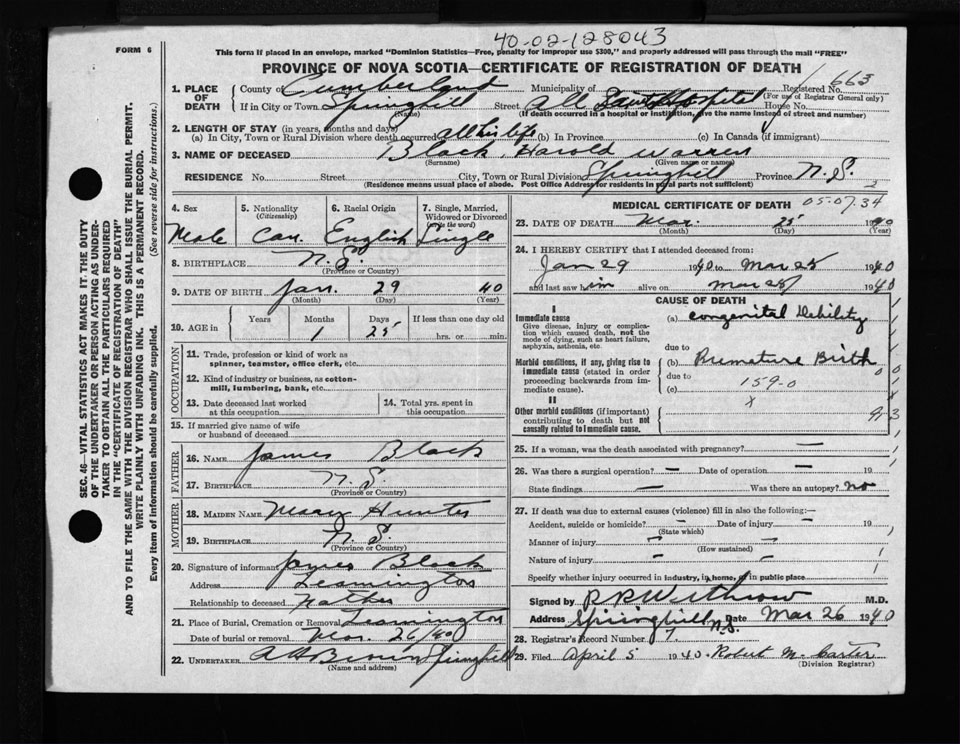 40-02-128043
FORM 6
This form if placed in an envelope, marked "Dominion Statistics—Free, penalty for improper use $300," and properly addressed will pass through the mail "FREE"
PROVINCE OF NOVA SCOTIA—CERTIFICATE OF REGISTRATION OF DEATH
SEC. 46—VITAL STATISTICS ACT MAKES IT THE DUTY
OF THE UNDERTAKER OR PERSON ACTING AS UNDER-
TAKER TO OBTAIN ALL THE PARTICULARS REQUIRED
IN THE "CERTIFICATE OF REGISTRATION OF DEATH"
AND TO FILE THE SAME WITH THE DIVISION REGISTRAR WHO SHALL ISSUE THE BURIAL PERMIT.
WRITE PLAINLY WITH UNFADING INK. THIS IS A PERMANENT RECORD.
Every item of information should be carefully supplied. (See reverse side for instructions.)
1. PLACE OF DEATH County of Cumberland Municipality of Registered No. 663
(For use of Registrar General only)
If in City or Town Springhill Street All Saints Hospital House No.
(Name) (If death occurred in a hospital or institution, give the name instead of street and number)
2. LENGTH OF STAY (in years, months and days)
(a) In City, Town or Rural Division where death occurred all his life (b) In Province (c) In Canada (if immigrant)
3. NAME OF DECEASED Black, Harold Warren
(Surname) (Given name or names)
RESIDENCE No. Street City, Town or Rural Division Springhill Province N.S.
(Residence means usual place of abode. Post Office Address for residents in rural parts not sufficient)
4. Sex 5. Nationality (Citizenship) 6. Racial Origin 7. Single, Married, Widowed or Divorced (write the word)
Male Can. English Single
8. BIRTHPLACE N.S.
(Province or Country)
9. DATE OF BIRTH Jan. 29 40
(Month) (Day) (Year)
10. AGE in Years Months Days If less than one day old
1 25 hrs. or min.
OCCUPATION
11. Trade, profession or kind of work as
spinner, teamster, office clerk, etc.
12. Kind of industry or business, as cotton-
mill, lumbering, bank, etc.
13. Date deceased last worked at this occupation 14. Total yrs. spent in this occupation
15. If married give name of wife
or husband of deceased
FATHER
16. NAME James Black
17. BIRTHPLACE N.S.
(Province or Country)
MOTHER
18. MAIDEN NAME Mary Hunter
19. BIRTHPLACE N.S.
(Province or Country)
20. Signature of informant James Black
Address Leamington
Relationship to deceased Father
21. Place of Burial, Cremation or Removal Leamington
Date of burial or removal Mar. 26/40
22. UNDERTAKER Springhill
(Name and address)
MEDICAL CERTIFICATE OF DEATH 05-07.34
23. DATE OF DEATH Mar. 25 1940
(Month) (Day) (Year)
24. I HEREBY CERTIFY that I attended deceased from:
Jan 29 1940 to Mar 25 1940
and last saw him alive on Mar 25 1940
CAUSE OF DEATH
I
Immediate cause (a) Congenital Debility
Give disease, injury or complica-
tion which caused death, not the
mode of dying, such as heart failure,
asphyxia, asthenia, etc.
due to
Morbid conditions, if any, giving rise to
immediate cause (stated in order
proceeding backwards from im-
mediate cause).
(b) Premature Birth
due to
(c) 159-0
II
Other morbid conditions (if important)
contributing to death but not
causally related to immediate cause.
25. If a woman, was the death associated with pregnancy? —
26. Was there a surgical operation? — Date of operation — 19
State findings — Was there an autopsy? no
27. If death was due to external causes (violence) fill in also the following:—
Accident, suicide or homicide? — Date of injury — 19
(State which)
Manner of injury —
(How sustained)
Nature of injury —
Specify whether injury occurred in industry, in home, or in public place
Signed by R P Withrow M.D.
Address Springhill N.S. Date Mar 26 1940
28. Registrar's Record Number 7
29. Filed April 5 1940 Robert M. Carter
(Division Registrar)